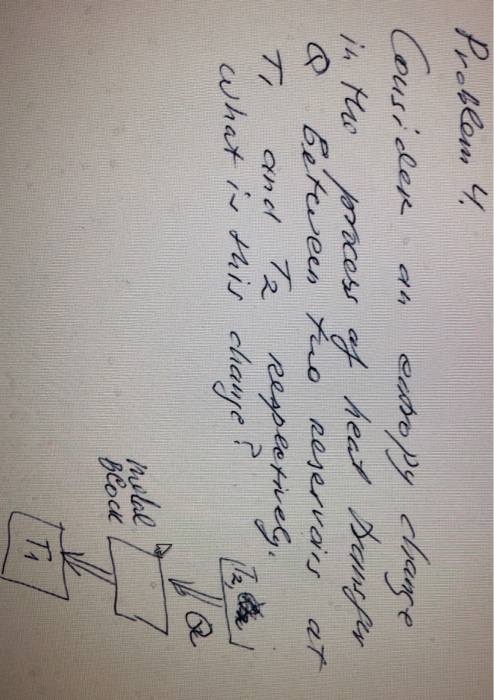 Problem 4.
Consider an entropy change
in the process of heat transfer
Q between two reservoirs at
T1 and T2 respectively.
What is this change?
T2,
Q
metal
block
T1